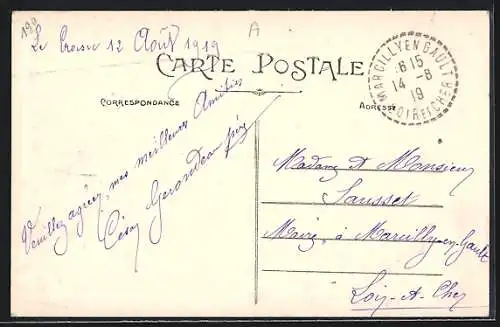 190
A
Le Croisic 12 Août 1919
CARTE POSTALE
CORRESPONDANCE
ADRESSE
MARCILLY EN GAULT
6 15
14 - 8
19
LOIR ET CHER
Veuillez agréer, mes meilleures Amitiés
Césay
Madame et Monsieur
Sausset
Maire, à Marcilly-en-Gault
Loir-et-Cher